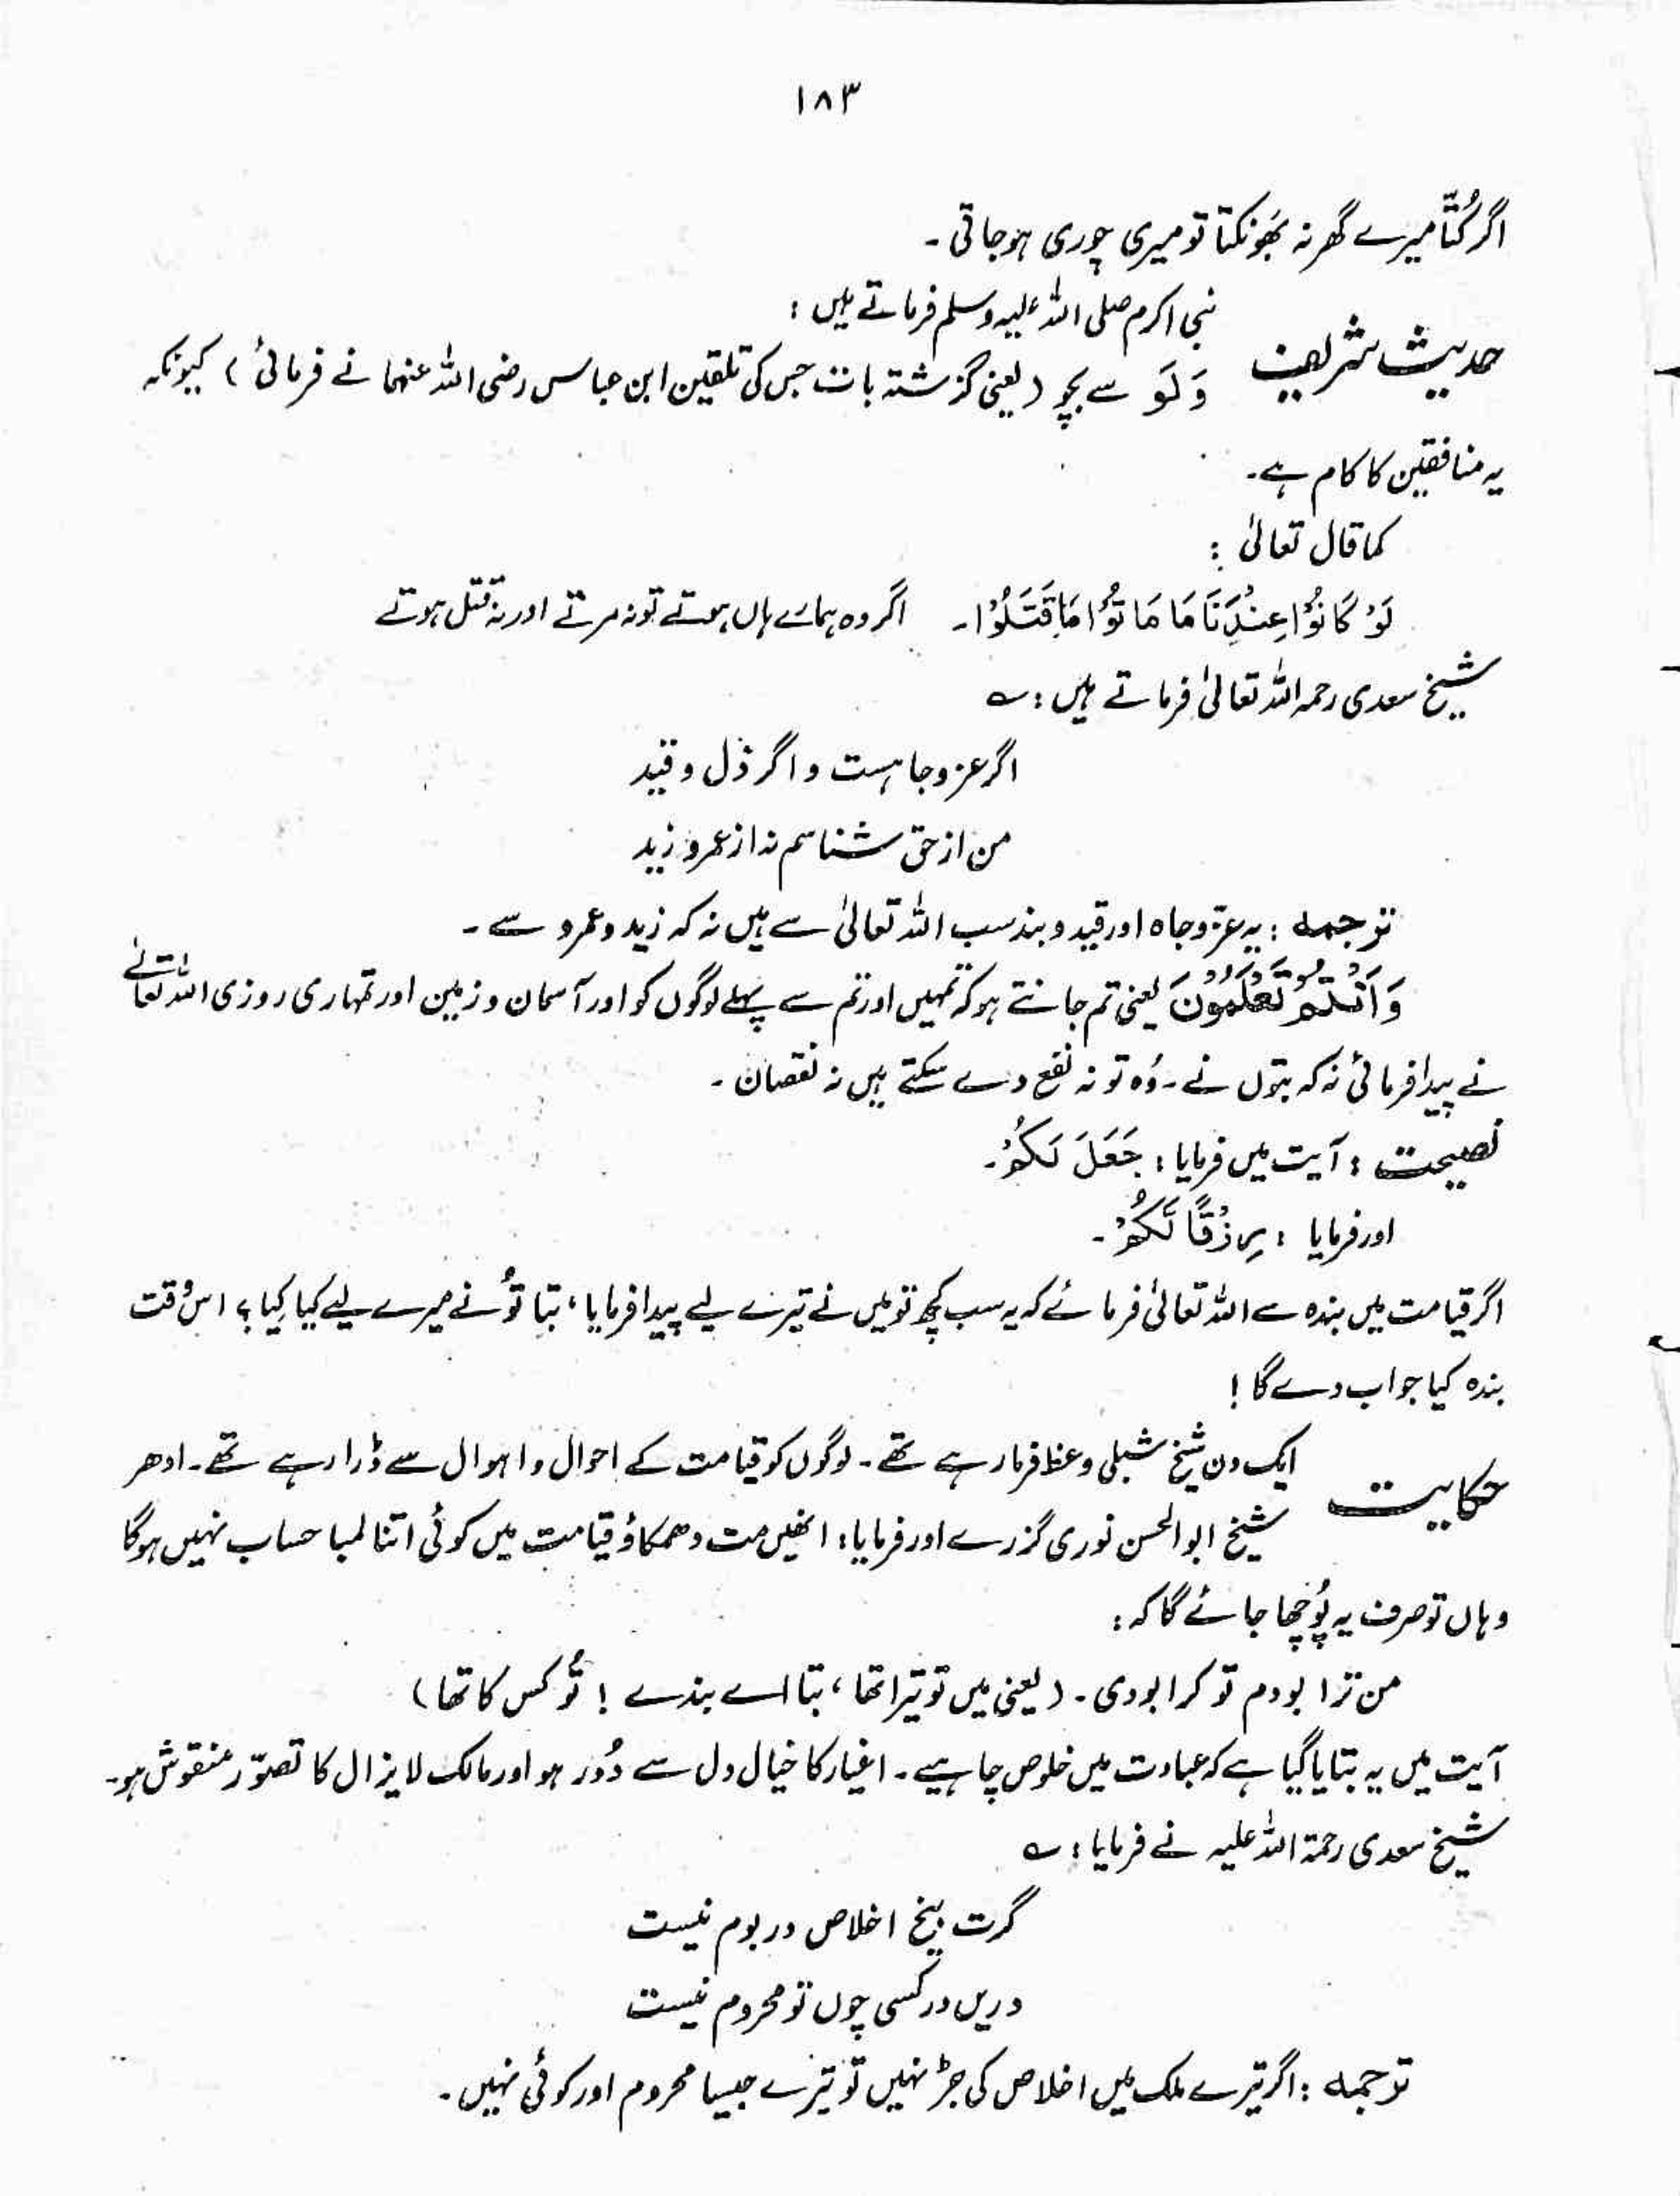 ۱۸۳
اگر کُتّا میرے گھر نہ بھَونکتا تو میری چوری ہو جاتی ۔
نبی اکرم صلی اللہ علیہ وسلم فرماتے ہیں :
حدیث شریف
وَ لَوَ سے بچو (یعنی گزشتہ بات جس کی تلقین ابن عباس رضی اللہ عنہما نے فرمائی ) کیونکہ
یہ منافقین کا کام ہے۔
کما قال تعالیٰ :
لَوْ كَانُوْا عِنْدَنَا مَا مَاتُوْا مَا قَتَلُوْا ۔ اگر وہ ہمارے ہاں ہوتے تو نہ مرتے اور نہ قتل ہوتے
شیخ سعدی رحمہ اللہ تعالیٰ فرماتے ہیں : ؎
اگر عز و جاہست و اگر ذل و قید
من از حق شناسم نہ از عمرو زید
ترجمہ : یہ عزّ و جاہ اور قید و بند سب اللہ تعالیٰ سے ہیں نہ کہ زید و عمرو سے ۔
وَ اَنْتُمْ تَعْلَمُوْنَ یعنی تم جانتے ہو کہ تمہیں اور تم سے پہلے لوگوں کو اور آسمان و زمین اور تمہاری روزی اللہ تعالیٰ
نے پیدا فرمائی نہ کہ بتوں نے ۔ وُہ تو نہ نفع دے سکتے ہیں نہ نقصان ۔
نصیحت : آیت میں فرمایا : جَعَلَ لَكُمُ ۔
اور فرمایا : رِزْقًا لَّكُمْ ۔
اگر قیامت میں بندہ سے اللہ تعالیٰ فرمائے کہ یہ سب کچھ تو میں نے تیرے لیے پیدا فرمایا ، بتا تُو نے میرے لیے کیا کِیا ؟ اس وقت
بندہ کیا جواب دے گا !
حکایت
ایک دن شیخ شبلی وعظ فرما رہے تھے ۔ لوگوں کو قیامت کے احوال و اہوال سے ڈرا رہے تھے ۔ ادھر
شیخ ابوالحسن نوری گزرے اور فرمایا : انھیں مت دھمکاؤ قیامت میں کوئی اتنا لمبا حساب نہیں ہوگا
وہاں تو صرف یہ پُوچھا جائے گا کہ :
من ترا بودم تو کرا بودی ۔ (یعنی میں تو تیرا تھا ، بتا اے بندے ! تُو کس کا تھا )
آیت میں یہ بتایا گیا ہے کہ عبادت میں خلوص چاہیے ۔ اغیار کا خیال دل سے دُور ہو اور مالک لایزال کا تصوّر منقوش ہو ۔
شیخ سعدی رحمۃ اللہ علیہ نے فرمایا : ؎
گرت بیخ اخلاص در بوم نیست
دریں در کسی چوں تو محروم نیست
ترجمہ : اگر تیرے ملک میں اخلاص کی جڑ نہیں تو تیرے جیسا محروم اور کوئی نہیں ۔